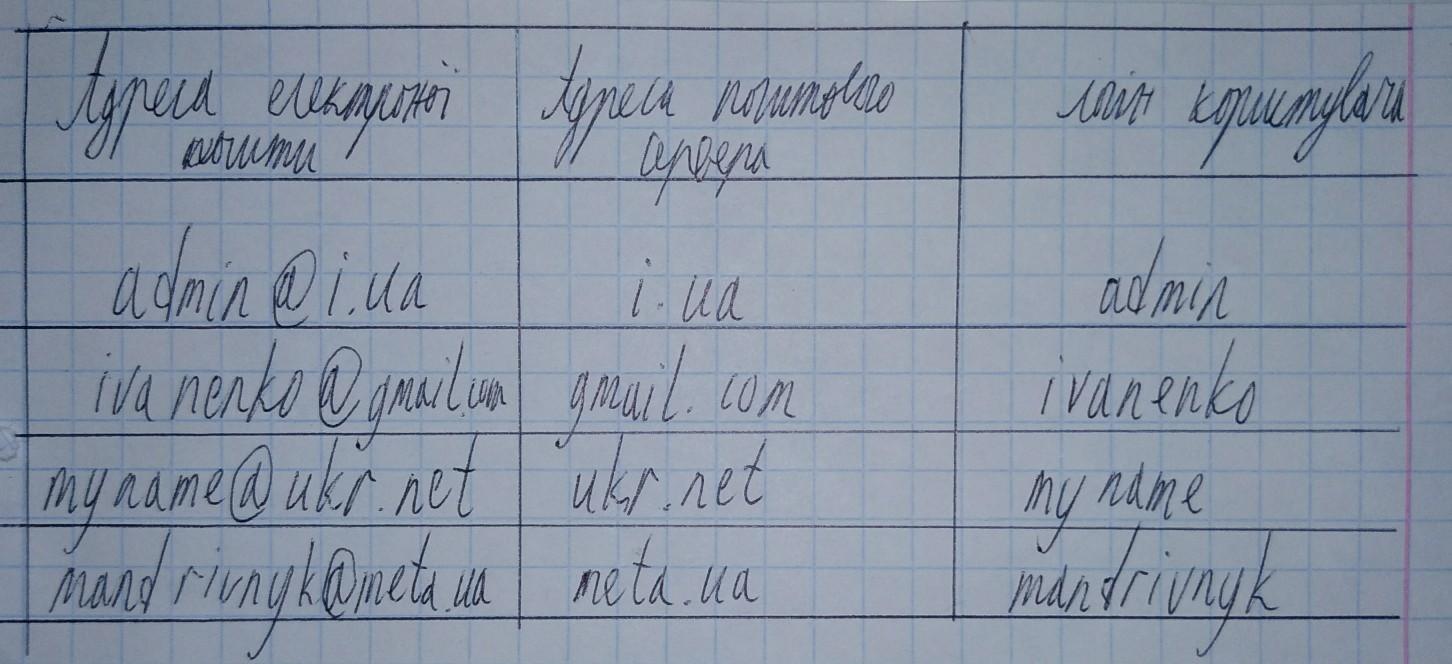 Адреса електроної Адреса поштового логін користувача
пошти сервера
admin@i.ua i.ua admin
ivanenko@gmail.com gmail.com ivanenko
myname@ukr.net ukr.net myname
mandrivnyk@meta.ua meta.ua mandrivnyk